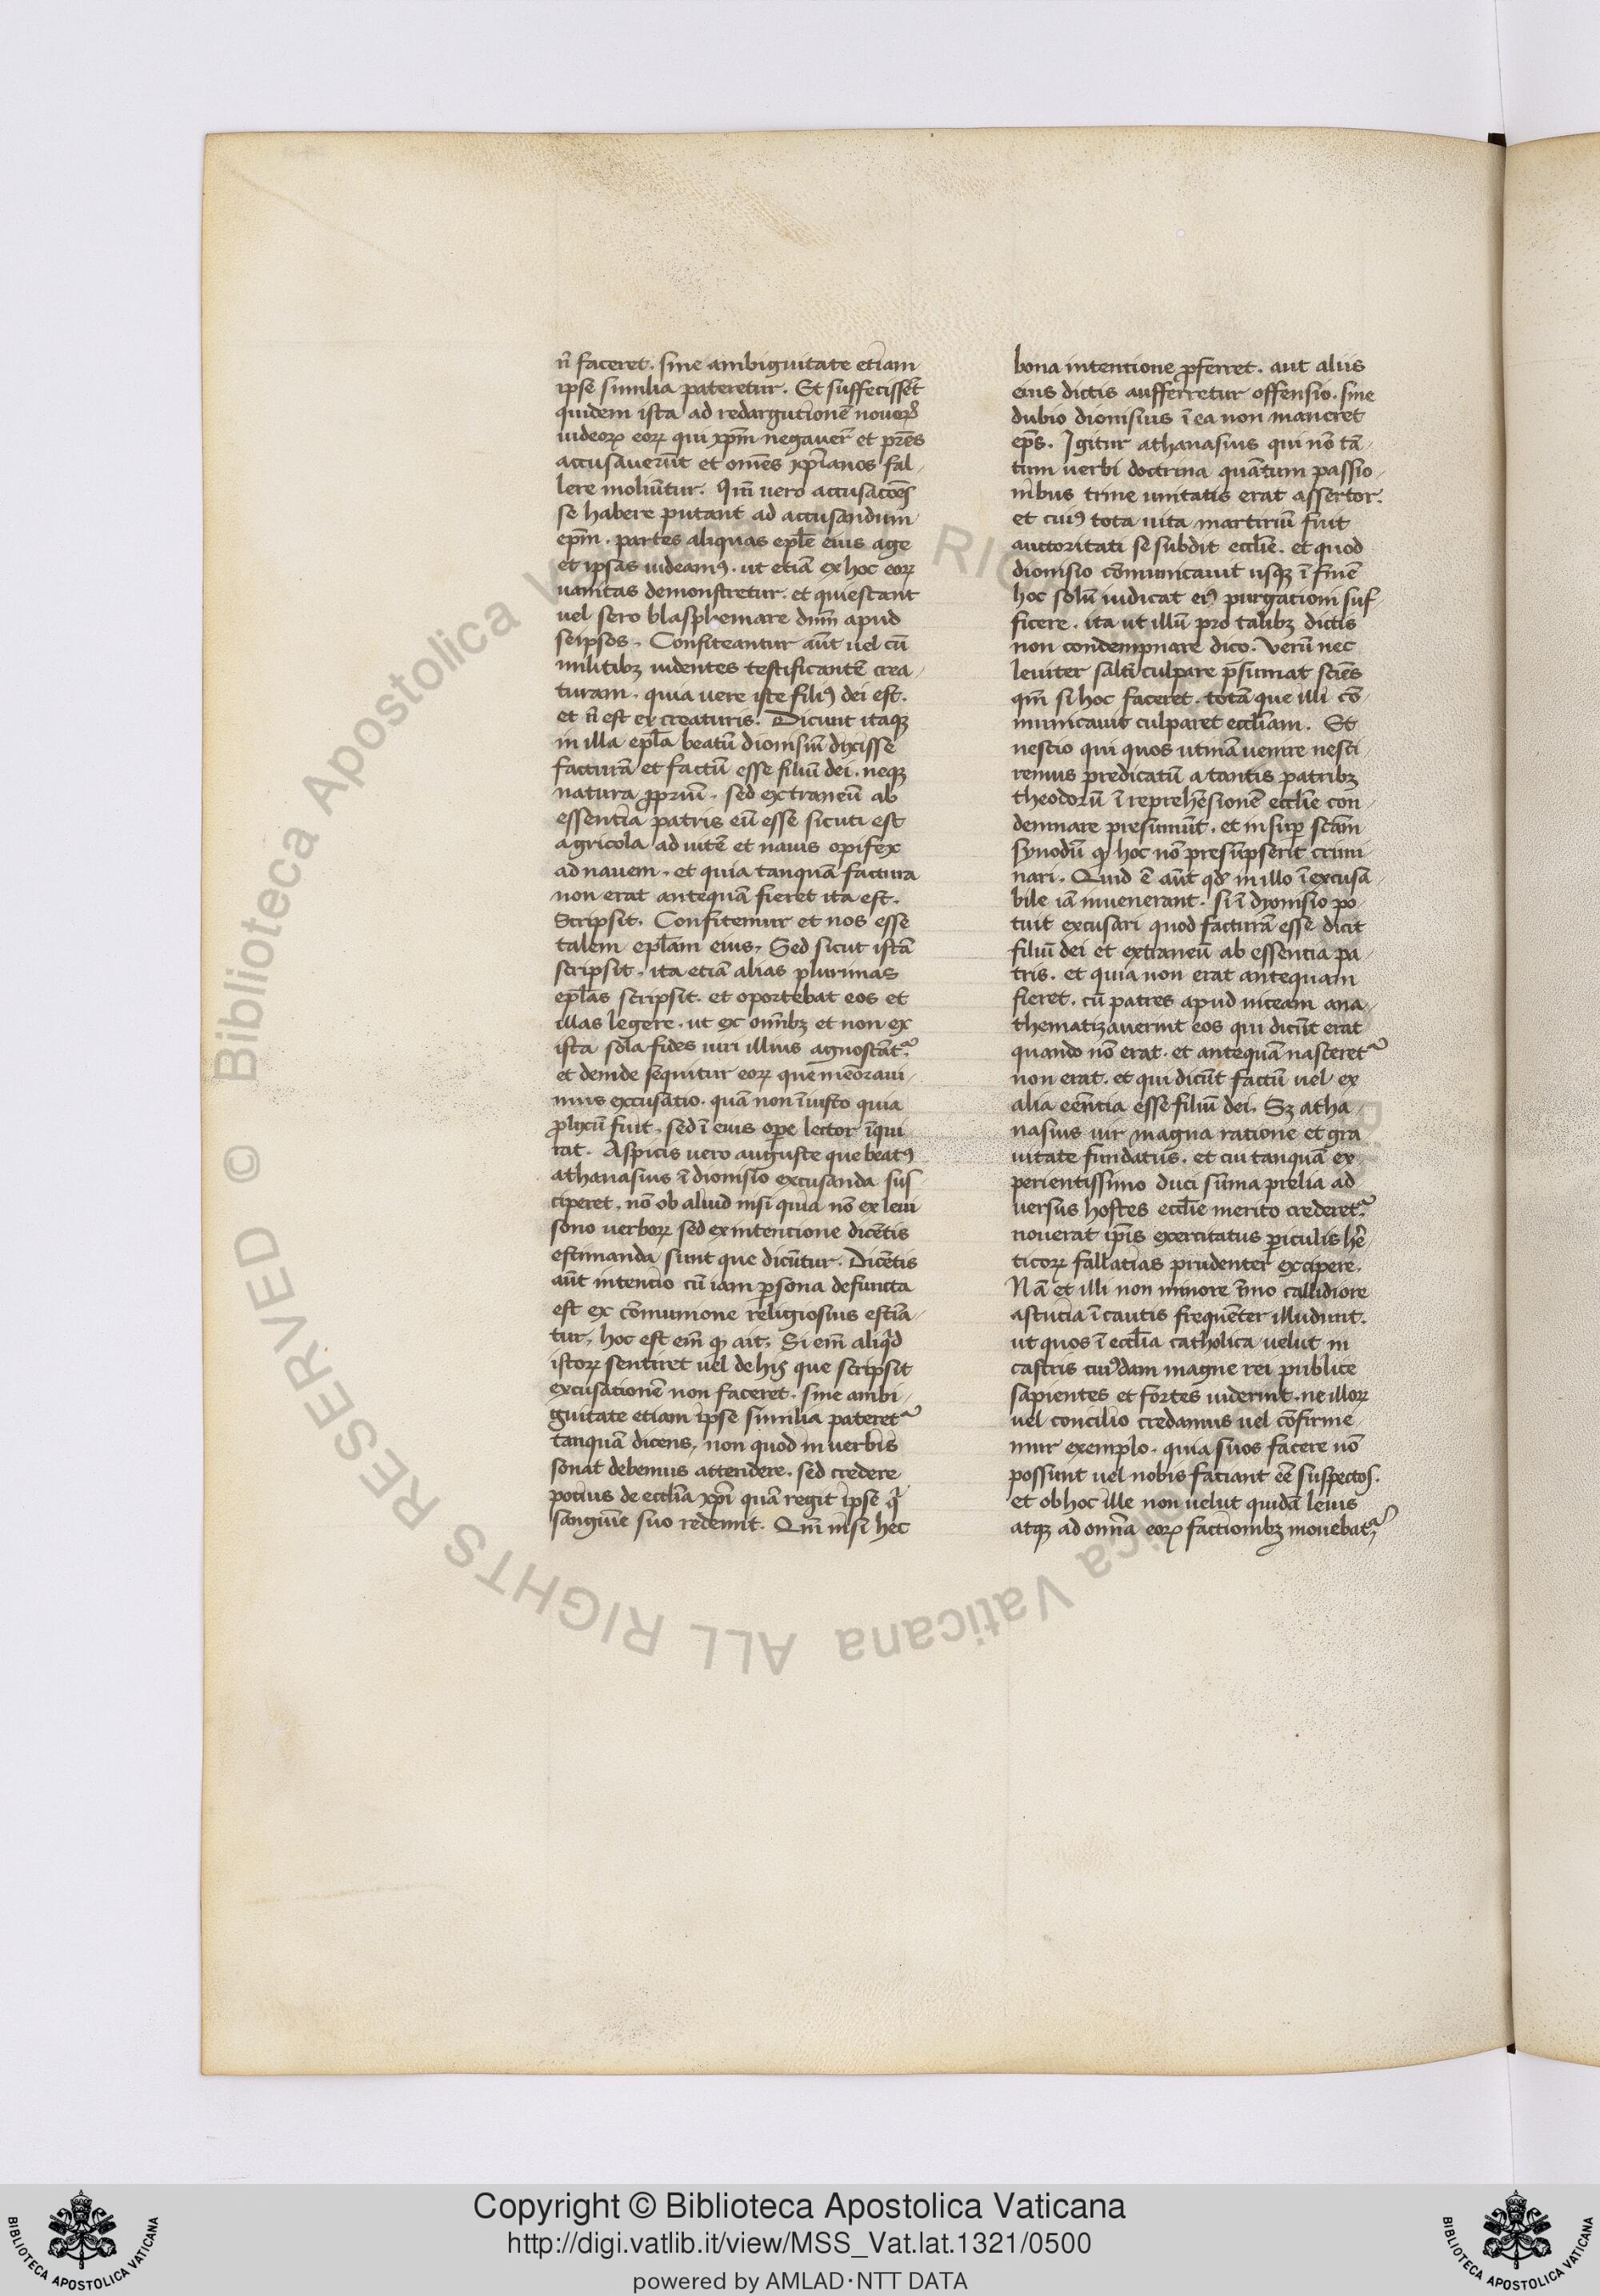 n̄ faceret. sine ambiguitate etiam
ipse similia pateretur. Et suffecissēt
quidem ista ad redargutionē nouorꝝ
iudeorꝝ eorꝝ qui xp̄m negauer̄ et pr̄es
accusauerūt et om̄es xp̄ianos fal-
lere moliūtur. Qm̄ uero accusacōes
se habere putant ad accusandum
ep̄m. partes aliquas epl̄e eius age
et ipsas uideamꝰ. ut etiā ex hoc eorꝝ
uanitas demonstretur. et quiescant
uel sero blasphemare dn̄m apud
seipsos. Confiteantur aūt uel cū
militibꝫ uidentes testificantē crea-
turam. quia uere iste filiꝰ dei est.
et n̄ est ex creaturis. Dicunt itaqꝫ
in illa epl̄a beatū dionisiū dixisse
facturā et factū esse filiū dei. neqꝫ
natura ꝓpriū. sed extraneū ab
essentia patris eū esse sicuti est
agricola ad uitē et nauis opifex
ad nauem. et quia tanquā factura
non erat antequā fieret ita est.
Scripsit. Confitemur et nos esse
talem epl̄am eius. Sed sicut istā
scripsit. ita etiā alias plurimas
epl̄as scripsit. et oportebat eos et
illas legere. ut ex om̄ibꝫ et non ex
ista sola fides uiri illius agnoscāt᷑.
et deinde sequitur eorꝝ que meōraui-
mus excusatio. quā non īiusto quia
ꝓlixū fuit. sed ī eius oꝑe lector īqui
rat. Aspicis uero auguste que beatꝰ
athanasius ī dionisio excusanda sus-
ciperet. nō ob aliud nisi quia nō ex leui
sono uerborꝝ sed ex intencione dicētis
estimanda sunt que dicūtur. Dicētis
aūt intencio cū iam ꝑsona defuncta
est ex cōmunione religiosius estīa-
tur. hoc est em̄ qꝫ ait. Si em̄ aliqͥd
istorꝝ sentiret uel de hijs que scripsit
excusationē non faceret. sine ambi-
guitate etiam ipse similia pateret᷑
tanquā dicens. non quod in uerbis
sonat debemus attendere. sed credere
potius de eccl̄ia xp̄i quā regit ipse qͥ
sanguine suo redemit. Qm̄ nisi hec
bona intentione ꝓferret. aut aliis
eius dictis aufferretur offensio. sine
dubio dionisius ī ea non maneret
ep̄s. Igitur athanasius qui nō tā-
tum uerbi doctrina quātum passio-
nibus trine unitatis erat assertor.
et cuiꝰ tota uita martiriū fuit
auctoritati se subdit eccl̄ie. et quod
dionisio cōmunicauit usqꝫ ī finē
hoc solū iudicat eiꝰ purgationi suf-
ficere. ita ut illū pro talibꝫ dictis
non condempnare dico. Verū nec
leuiter saltī culpare p̄sumat sciēs
qm̄ si hoc faceret. totā que illi cō-
municauit culparet eccl̄iam. Et
nescio qui quos utinā uenire nesci
remus predicatū a tantis patribꝫ
theodorū ī reprehēsionē eccl̄ie con-
demnare presumūt. et insuꝑ sc̄am
synodū qꝫ hoc nō presūpserit crimi-
nari. Quid ē aūt qd̄ in illo īexcusa-
bile iā inuenerant. si ī dyonisio po-
tuit excusari quod facturā esse dicit
filiū dei et extraneū ab essentia pa-
tris. et quia non erat antequam
fieret. cū patres apud niceam ana-
thematizauerint eos qui dicūt erat
quando nō erat. et antequā nasceret᷑
non erat. et qui dicūt factū uel ex
alia eēntia esse filiū dei. Sꝫ atha-
nasius uir magna ratione et gra
uitate fundatus. et cui tanquā ex-
perientissimo duci sūma prelia ad
uersus hostes eccl̄ie merito crederet᷑.
nouerat ip̄is exercitatus ꝑiculis hē-
ticorꝝ fallatias prudenter excipere.
Nā et illi non minore īmo callidiore
astucia īcautis frequēter illudunt.
ut quos ī eccl̄ia catholica uelut in
castris cuiꝰdam magne rei publice
sapientes et fortes uiderint. ne illorꝝ
uel concilio credamus uel cōfirme-
mur exemplo. quia suos facere nō
possunt uel nobis faciant eē suspectos.
et ob hoc ille non uelut quidā leuis
atqꝫ ad om̄ia eorꝝ factionibꝫ mouebat᷑
© Biblioteca Apostolica Vaticana ALL RIGHTS RESERVED
Copyright © Biblioteca Apostolica Vaticana
http://digi.vatlib.it/view/MSS_Vat.lat.1321/0500
powered by AMLAD·NTT DATA
BIBLIOTECA APOSTOLICA VATICANA
BIBLIOTECA APOSTOLICA VATICANA